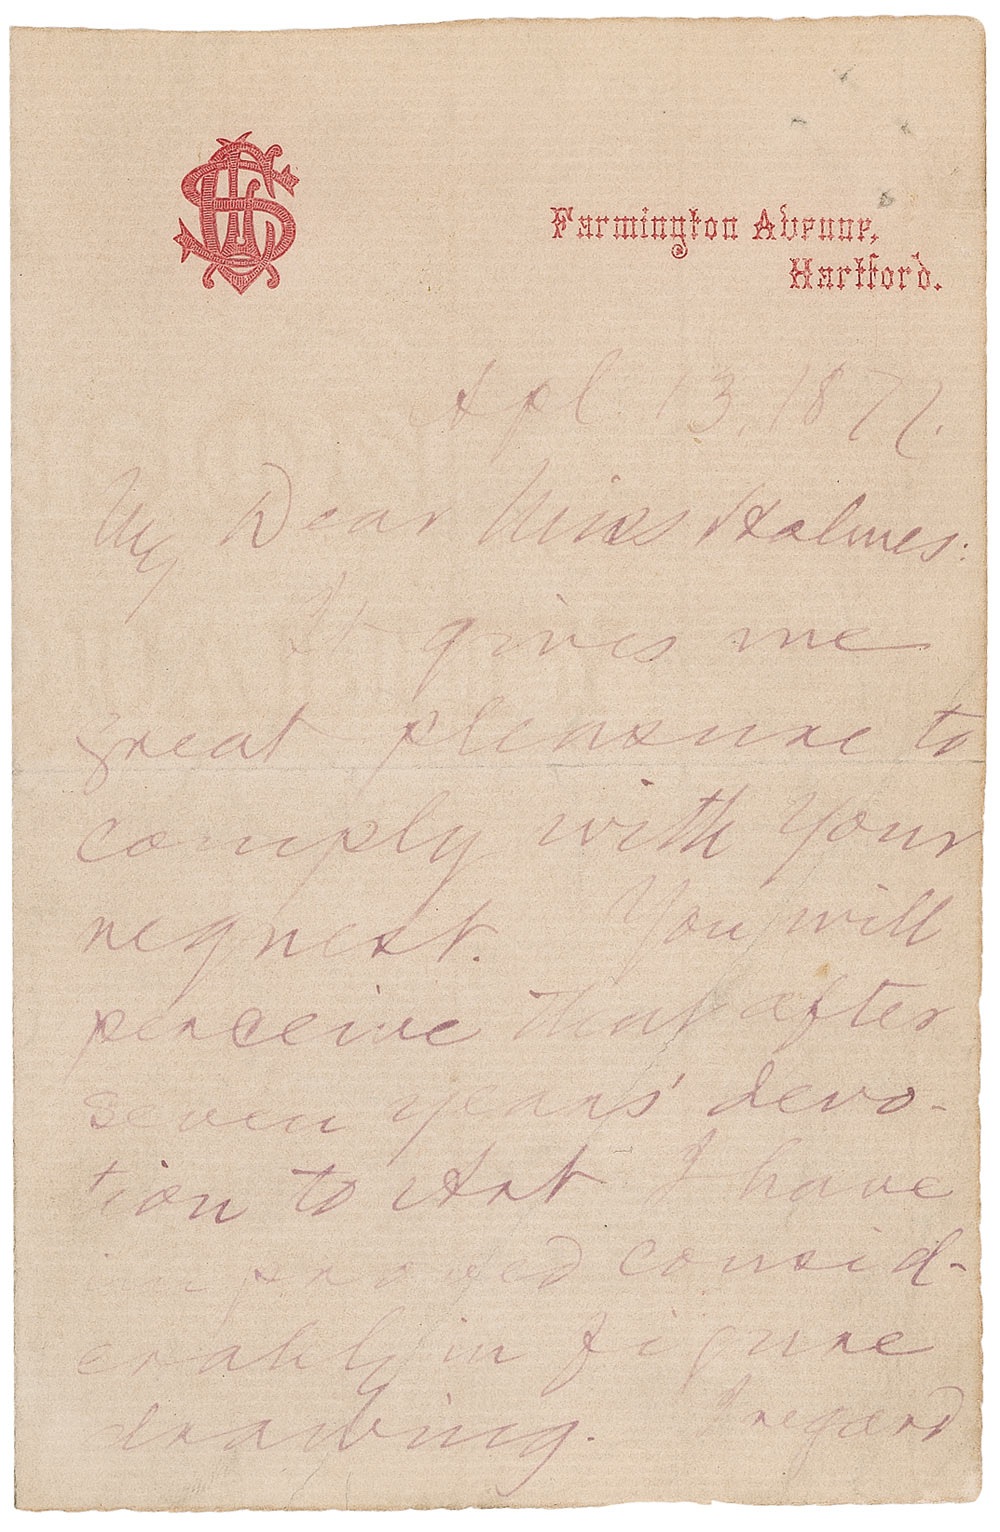 Farmington Avenue,
Hartford.
Apl. 13, 1877.
My Dear Miss Holmes:
It gives me
great pleasure to
comply with your
request. You will
perceive that after
seven years' devo-
tion to Art I have
improved consid-
erably in figure
drawing. I regard